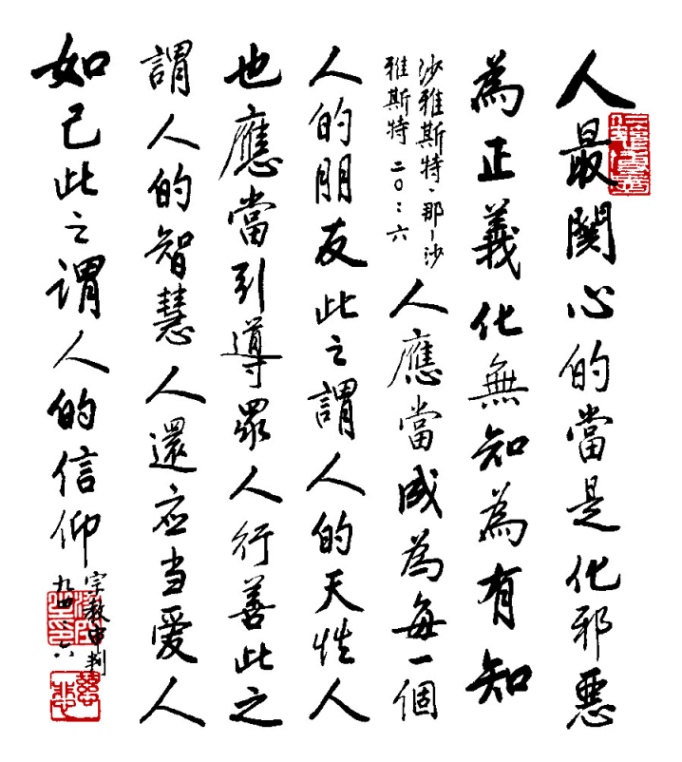 人最關心的當是化邪惡
為正義化無知為有知
沙雅斯特·那-沙
雅斯特 二〇:六
人應當成為每一個
人的朋友此之謂人的天性人
也應當引導眾人行善此之
謂人的智慧人還应当愛人
如己此之謂人的信仰
宗教审判
九四:六